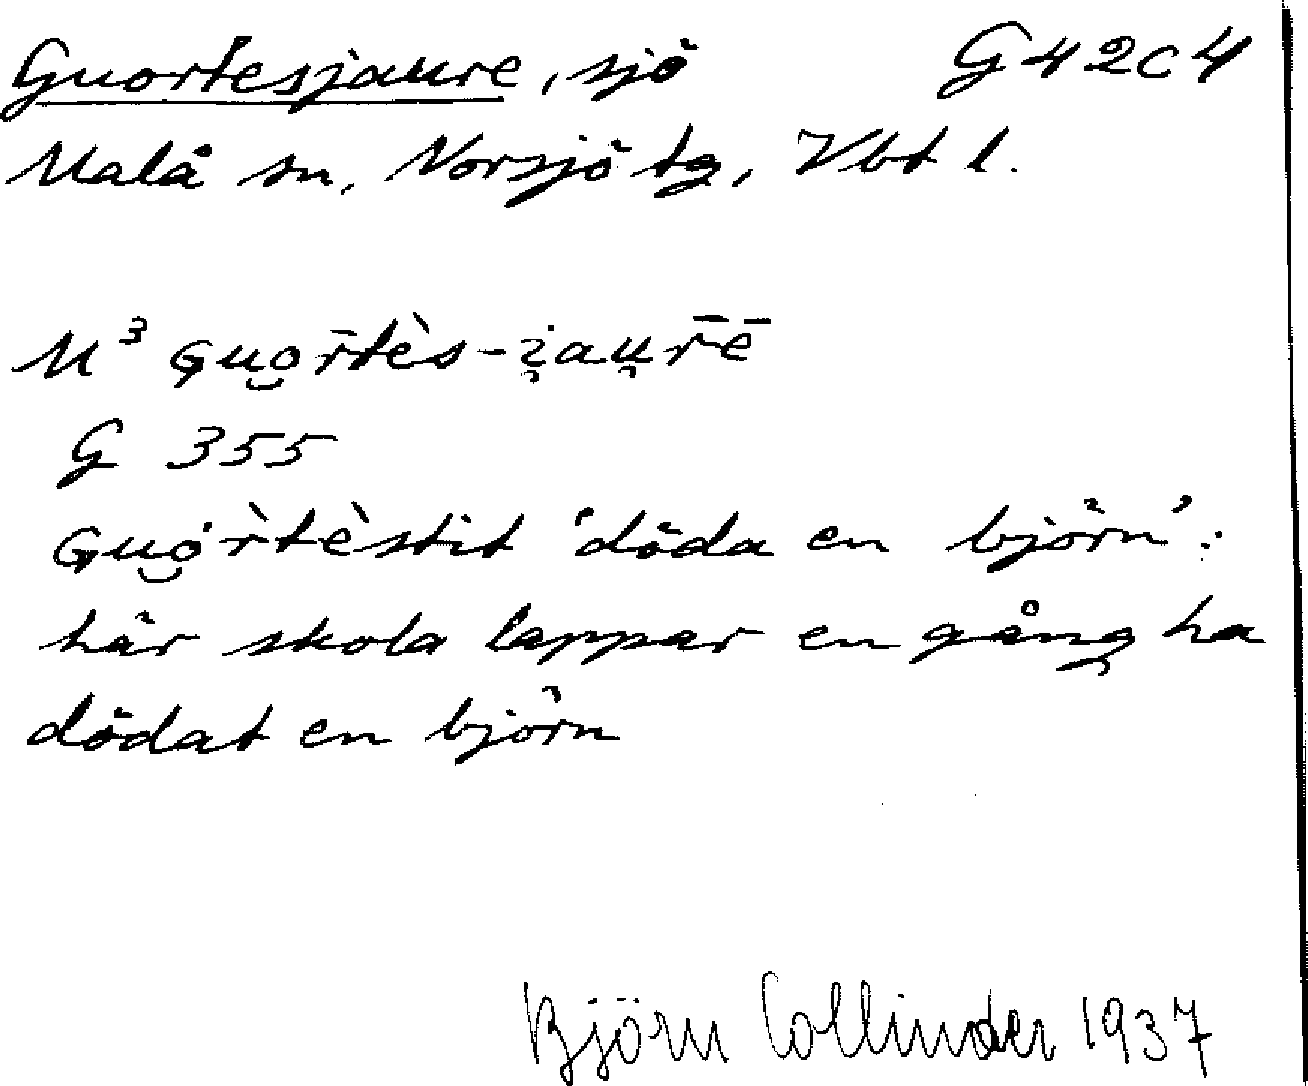 Guortesjaure, sjö G42c4
Malå sn, Norsjö tg, Vbt l.
M³ Guo̮r̄tès-i̯au̯r̄ē
G 355
Guȯ̮r̀tèstit 'döda en björn':
här skola lappar en gång ha
dödat en björn
Björn Collinder 1937